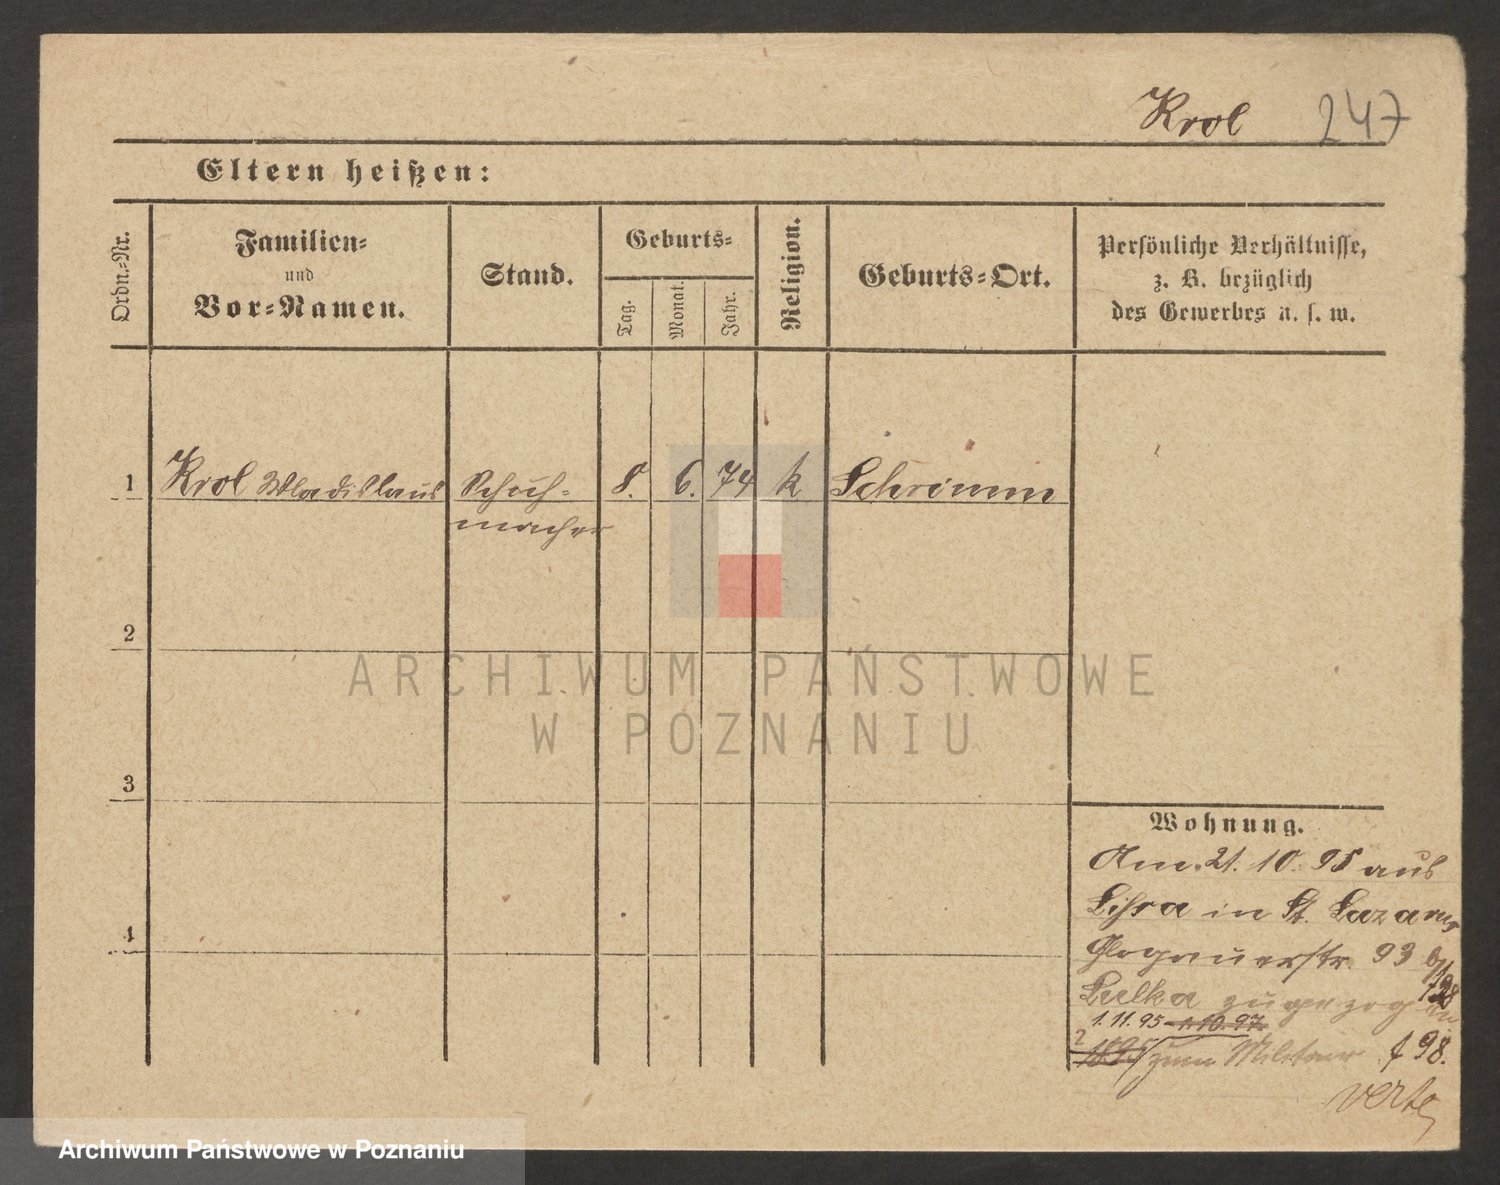 Krol 247
Eltern heißen:
Ordn.-Nr.
Familien-
und
Vor-Namen.
Stand.
Geburts-
Tag.
Monat.
Jahr.
Religion.
Geburts-Ort.
Persönliche Verhältnisse,
z. B. bezüglich
des Gewerbes u. s. w.
1 Krol Wladislaus Schuh- 8. 6. 74 k Schrimm
macher
2
3
4
Wohnung.
Am 21. 10. 95 aus
Lissa in St. Lazarus
Glogauerstr. 93 b/
Lulka zugezogen
1.11.95 1.10.97
zum Militair 98.
verte
ARCHIWUM PAŃSTWOWE
W POZNANIU
Archiwum Państwowe w Poznaniu